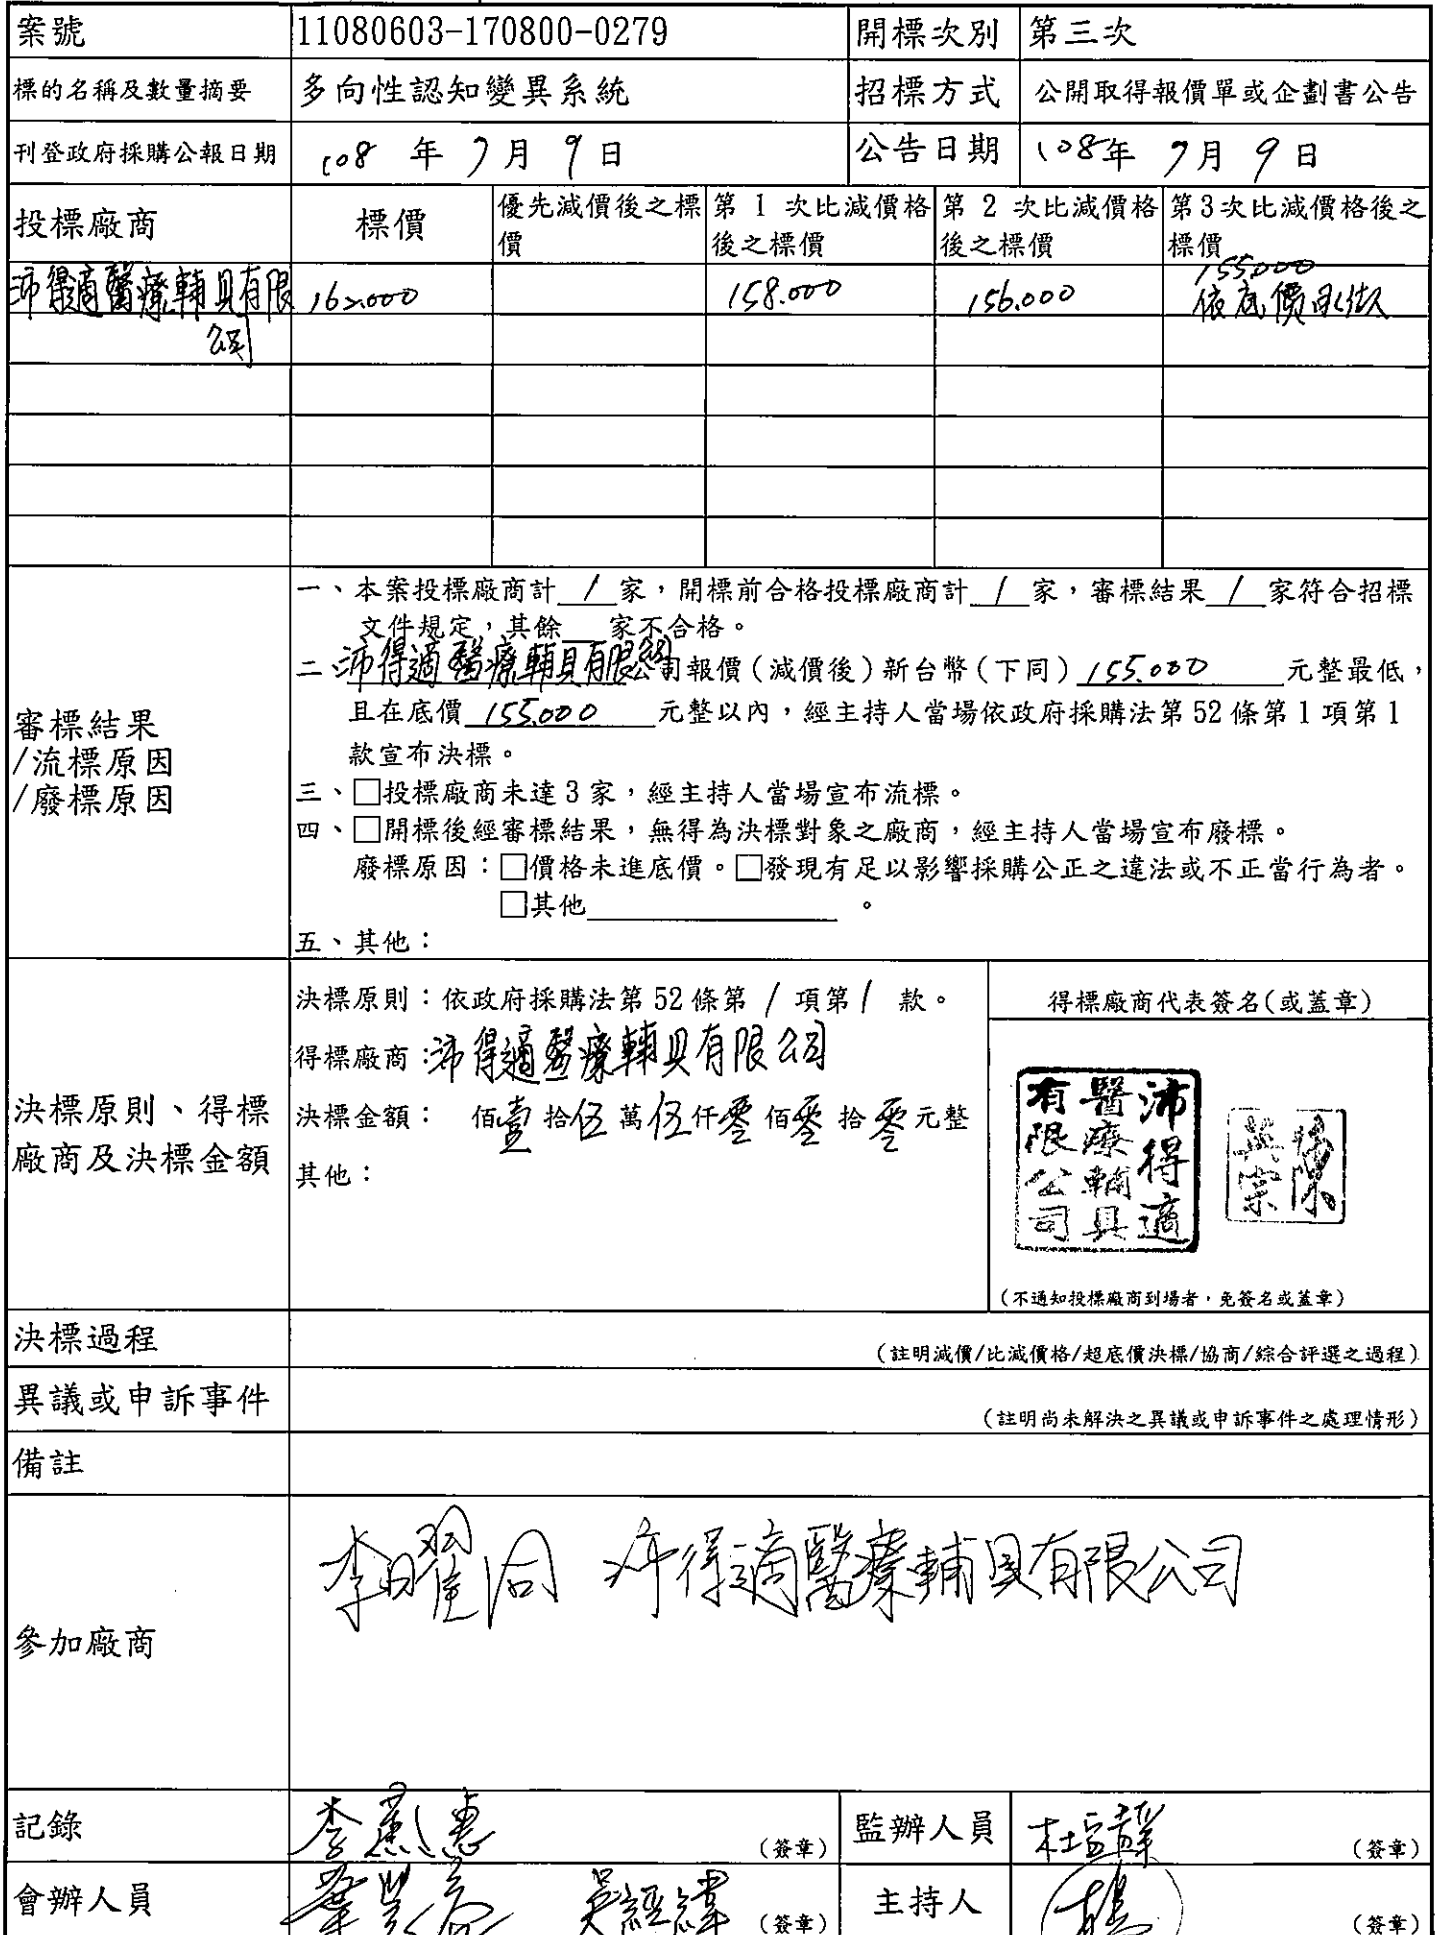 案號 11080603-170800-0279 開標次別 第三次
標的名稱及數量摘要 多向性認知變異系統 招標方式 公開取得報價單或企劃書公告
刊登政府採購公報日期 108 年 7 月 9 日 公告日期 108年 7月 9日
投標廠商 標價 優先減價後之標價 第 1 次比減價格後之標價 第 2 次比減價格後之標價 第3次比減價格後之標價
155,000
沛得適醫療輔具有限公司 162,000 158,000 156,000 依底價承做
審標結果
/流標原因
/廢標原因
一、本案投標廠商計 1 家，開標前合格投標廠商計 1 家，審標結果 1 家符合招標
文件規定，其餘 家不合格。
二、沛得適醫療輔具有限公司報價(減價後)新台幣(下同) 155,000 元整最低，
且在底價 155,000 元整以內，經主持人當場依政府採購法第 52 條第 1 項第 1
款宣布決標。
三、□投標廠商未達 3 家，經主持人當場宣布流標。
四、□開標後經審標結果，無得為決標對象之廠商，經主持人當場宣布廢標。
廢標原因：□價格未進底價。□發現有足以影響採購公正之違法或不正當行為者。
□其他 。
五、其他：
決標原則、得標
廠商及決標金額
決標原則：依政府採購法第 52 條第 1 項第 1 款。
得標廠商：沛得適醫療輔具有限公司
決標金額： 佰壹拾伍萬伍仟零佰零拾零元整
其他：
得標廠商代表簽名(或蓋章)
沛得適
醫療輔具
有限公司
(不通知投標廠商到場者，免簽名或蓋章)
決標過程 (註明減價/比減價格/超底價決標/協商/綜合評選之過程)
異議或申訴事件 (註明尚未解決之異議或申訴事件之處理情形)
備註
參加廠商 沛得適醫療輔具有限公司
記錄 (簽章) 監辦人員 (簽章)
會辦人員 吳經緯 (簽章) 主持人 (簽章)